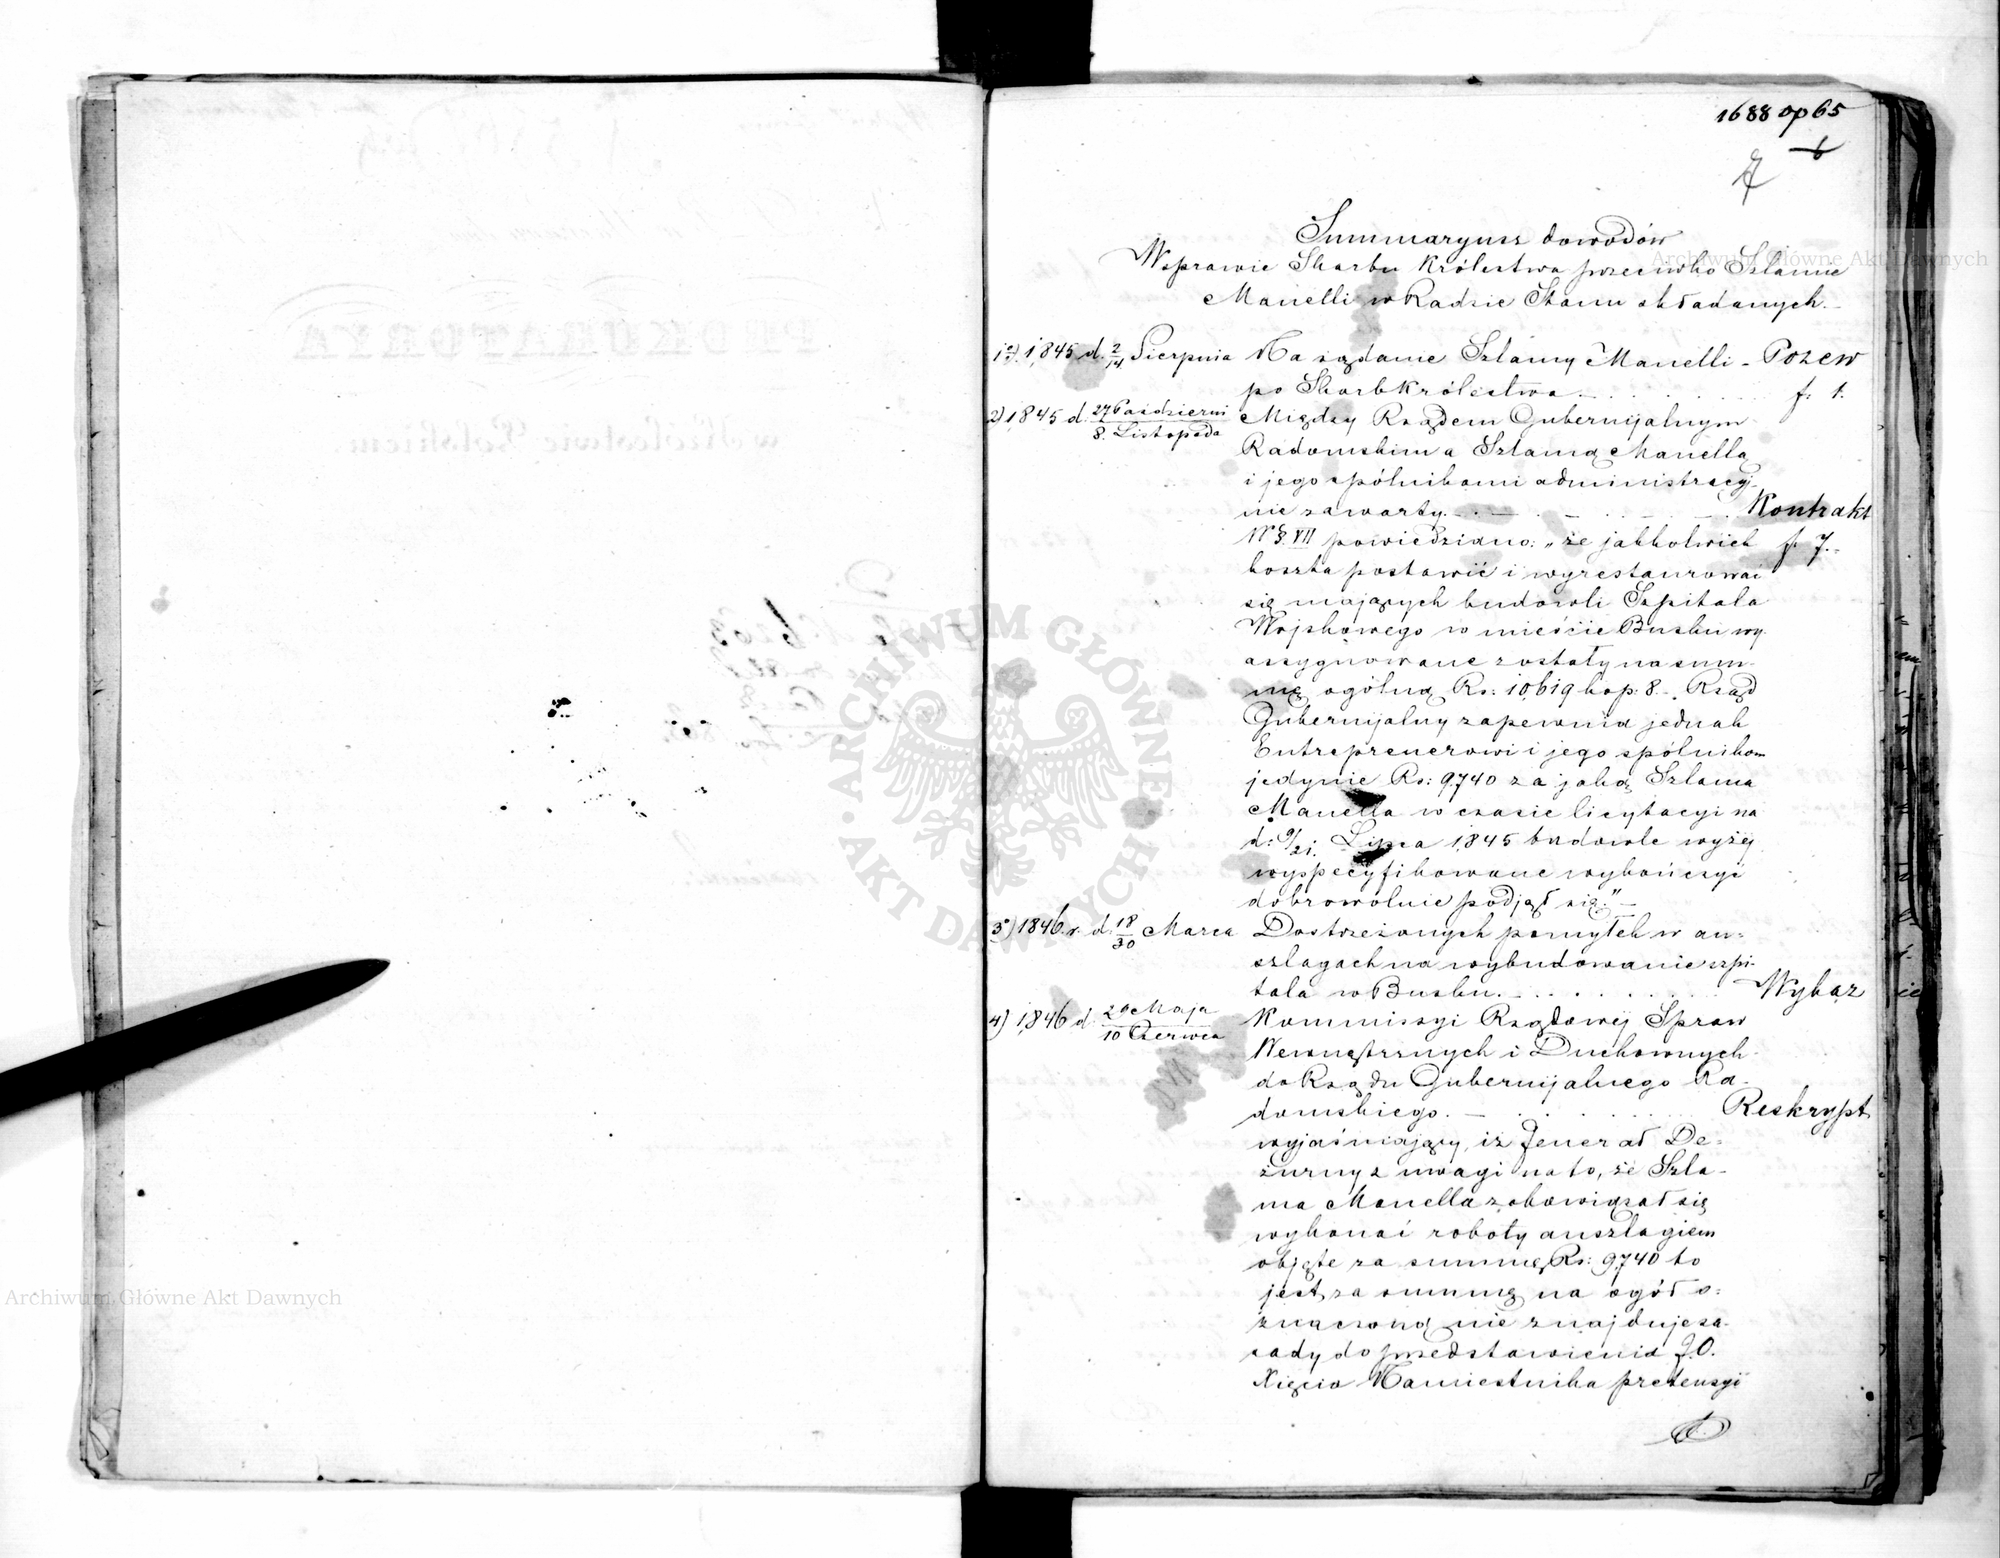 1688 op 65
6
7
Summaryusz dowodów
W sprawie Skarbu Królestwa przeciwko Szlamie
Manelli w Radzie Stanu składanych.
1e). 1845 d. 2/14 Sierpnia Na żądanie Szlamy Manelli - Pozew
po Skarb Królestwa f. 1.
2) 1845 d. 27 Październi / 8. Listopada Między Rządem Gubernijalnym
Radomskim a Szlamą Manellą
i jego spólnikami administracyj-
nie zawarty. Kontrakt
W §. VII powiedziano: „że jakkolwiek f. 7.
koszta postawić i wyrestaurować
się mających budowli Szpitala
Wojskowego w mieście Busku wy-
assygnowane zostały na sum-
mę ogólną Rs: 10619 kop: 8. Rząd
Gubernijalny zapewnia jednak
Entreprenerowi i jego spólnikom
jedynie Rs: 9740 za jaką Szlama
Manella w czasie licytacyi na
d: 9/21. Lipca 1845 budowle wyżej
wyspecyfikowane wykończyć
dobrowolnie podjął się." —
3) 1846 r. d. 18/30 Marca Dostrzeżonych pomyłek w an-
szlagach na wybudowanie szpi-
tala w Busku. Wykaz
4) 1846 d. 29 Maja / 10 Czerwca Kommissyi Rządowej Spraw
Wewnętrznych i Duchownych
do Rządu Gubernijalnego Ra-
domskiego. Reskrypt
wyjaśniający, iż Jenerał De-
żurny z uwagi na to, że Szla-
ma Manella zobowiązał się
wykonać roboty anszlagiem
objęte za summę Rs: 9740 to
jest, za summę na ogół o-
znaczoną nie znajduje za-
sady do przedstawienia J.O.
Xięcia Namiestnika pretensyi
ARCHIWUM GŁÓWNE AKT DAWNYCH
Archiwum Główne Akt Dawnych
Archiwum Główne Akt Dawnych